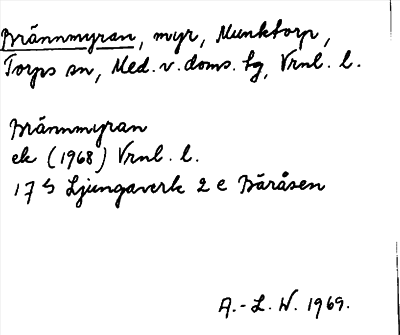 Brännmyran, myr, Munktorp,
Torps sn, Med. v. doms. tg, Vrnl. l.
Brännmyran
ek (1968) Vrnl. l.
17 G Ljungaverk 2 e Båråsen
A.-L. W. 1969.